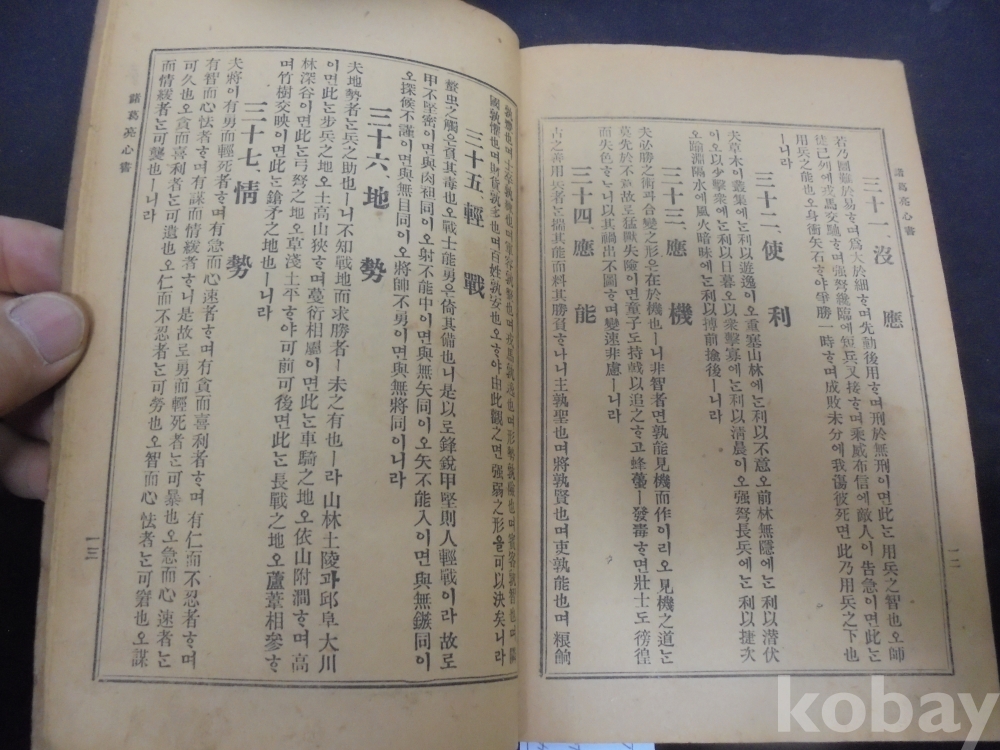 諸葛亮心書
三十一、沒應
若乃圖難於易ᄒᆞ며爲大於細ᄒᆞ며先動後用ᄒᆞ며刑於無刑이면此ᄂᆞᆫ用兵之智也오師
徒已列에戎馬交馳ᄒᆞ며强弩纔臨에短兵又接ᄒᆞ며乘威布信에敵人이告急이면此ᄂᆞᆫ
用兵之能也오身衝矢石ᄒᆞ야爭勝一時ᄒᆞ며成敗未分에我傷彼死면此乃用兵之下也
ㅣ니라
三十二、使利
夫草木이叢集에ᄂᆞᆫ利以遊逸이오重塞山林에ᄂᆞᆫ利以不意오前林無隱에ᄂᆞᆫ利以潛伏
이오以少擊衆에ᄂᆞᆫ利以日暮오以衆擊寡에ᄂᆞᆫ利以淸晨이오强弩長兵에ᄂᆞᆫ利以捷次
오踰淵隔水에風火暗昧에ᄂᆞᆫ利以搏前擒後ㅣ니라
三十三、應機
夫必勝之術과合變之形은在於機也ㅣ니非智者면孰能見機而作이리오見機之道ᄂᆞᆫ
莫先於不意故로猛獸失險이면童子도持戟以追之ᄒᆞ고蜂蠆ㅣ發毒ᄒᆞ면壯士도徬徨
而失色ᄒᆞᄂᆞ니以其禍出不圖ᄒᆞ며變速非慮ㅣ니라
三十四、應能
古之善用兵者ᄂᆞᆫ揣其能而料其勝負ᄒᆞ나니主孰聖也며將孰賢也며吏孰能也며粮餉
一二
孰豐也며士卒孰練也며軍容孰整也며戎馬孰逸也며形勢孰險也며賓客孰智也며隣
國孰懼也며財貨孰多也며百姓孰安也오ᄒᆞ야由此觀之면强弱之形을可以決矣니라
三十五、輕戰
螫虫之觸은負其毒也오戰士能勇은倚其備也니是以로鋒銳甲堅則人輕戰이라故로
甲不堅密이면與肉袒同이오射不能中이면與無矢同이오矢不能入이면與無鏃同이
오探候不謹이면與無目同이오將帥不勇이면與無將同이니라
三十六、地勢
夫地勢者ᄂᆞᆫ兵之助也ㅣ니不知戰地而求勝者ㅣ未之有也ㅣ라山林土陵과邱阜大川
이면此ᄂᆞᆫ步兵之地오土高山狹ᄒᆞ며蔓衍相屬이면此ᄂᆞᆫ車騎之地오依山附澗ᄒᆞ며高
林深谷이면此ᄂᆞᆫ弓弩之地오草淺土平ᄒᆞ야可前可後면此ᄂᆞᆫ長戰之地오蘆葦相參ᄒᆞ
며竹樹交映이면此ᄂᆞᆫ鎗矛之地也ㅣ니라
三十七、情勢
夫將이有勇而輕死者ᄒᆞ며有急而心速者ᄒᆞ며有貪而喜利者ᄒᆞ며有仁而不忍者ᄒᆞ며
有智而心怯者ᄒᆞ며有謀而情緩者ᄒᆞ니是故로勇而輕死者ᄂᆞᆫ可暴也오急而心速者ᄂᆞᆫ
可久也오貪而喜利者ᄂᆞᆫ可遺也오仁而不忍者ᄂᆞᆫ可勞也오智而心怯者ᄂᆞᆫ可窘也오謀
而情緩者ᄂᆞᆫ可襲也ㅣ니라
諸葛亮心書
一三
kobay